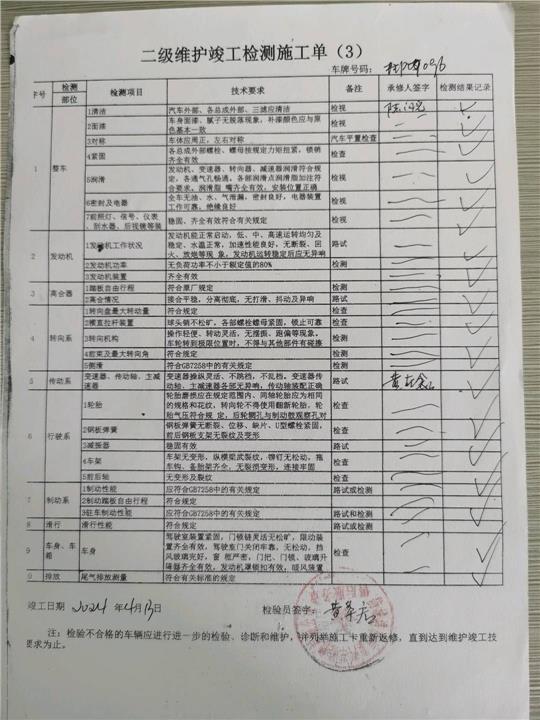 二级维护竣工检测施工单（3）
车牌号码：
序号 检测部位 检测项目 技术要求 备注 承修人签字 检测结果记录
1 整车 1清洁 汽车外部、各总成外部、三滤应清洁 检视
2面漆 车身面漆、腻子无脱落现象，补漆颜色应与原色基本一致 检视
3对称 车体应周正，左右对称 汽车平置检查
4紧固 各总成外部螺栓、螺母按规定力矩扭紧，锁销齐全有效 检查
5润滑 发动机、变速器、转向器、减速器润滑符合规定，各通气孔畅通。各部润滑点润滑脂加注符合要求，润滑脂 嘴齐全有效，安装位置正确 检视
6密封及电器 全车无油、水、气泄漏，密封良好，电器装置工作可靠，绝缘良好 检视
7前照灯、信号、仪表、刮水器、后视镜等装 稳固、齐全有效符合有关规定 检视
2 发动机 1发动机工作状况 发动机能正常启动，低、中、高速运转均匀及稳定、水温正常，加速性能良好，无断裂、回火、放炮等现 象，发动机运转稳定后应无异响 路试
2发动机功率 无负荷功率不小于额定值的80% 检测
3发动机装置 齐全有效 检视
3 离合器 1踏板自由行程 符合原厂规定 检测
2离合情况 接合平稳，分离彻底，无打滑、抖动及异响 路试
4 转向系 1转向盘最大转动量 符合规定 检查
2横直拉杆装置 球头销不松旷，各部螺栓螺母紧固，锁止可靠 检查
3转向机构 操作轻便、转动灵活，无摆振、跑偏等现象。车轮转到极限位置时，不得与其他部件有碰擦 检测
4前束及最大转向角 符合规定 检测
5侧滑 符合GB7258中的有关规定 检测
5 传动系 变速器、传动轴、主减速器 变速器操纵灵活、不跳档、不乱档。变速器传动轴、主减速器各部无异响，传动轴装配正确 路试
6 行驶系 1轮胎 轮胎磨损应在规定范围内、同轴轮胎应为相同的规格和花纹，转向轮不得使用翻新轮胎，轮胎气压符合规 定，后轮辋孔与制动鼓观察孔对 检查
2钢板弹簧 钢板弹簧无断裂、位移、缺片、U型螺栓紧固，前后钢板支架无裂纹及变形 检查
3减振器 稳固有效 路试
4车架 车架无变形，纵横梁武裂纹，铆钉无松动，拖车钩、备胎架齐全，无裂损变形，连接牢固 检查
5前后轴 无变形及裂纹 检查
7 制动系 1制动性能 应符合GB7258中的有关规定 路试或检测
2制动踏板自由行程 符合规定
3驻车制动性能 应符合GB7258中的有关规定 路试和检测
8 滑行 滑行性能 符合规定 路试或检测
9 车身、车箱 车身 驾驶室装置紧固，门锁链灵活无松旷，限动装置齐全有效，驾驶室门关闭牢靠，无松动，挡风玻璃完好，窗 框严密，门把、门锁、玻璃升降器齐全有效，发动机罩锁扣有效，暖风装置 检查
9 排放 尾气排放测量 符合有关标准的规定
竣工日期 2024年4月13日 检验员签字：
注：检验不合格的车辆应进行进一步的检验、诊断和维护，并列举施工卡重新返修，直到达到维护竣工技
要求为止。